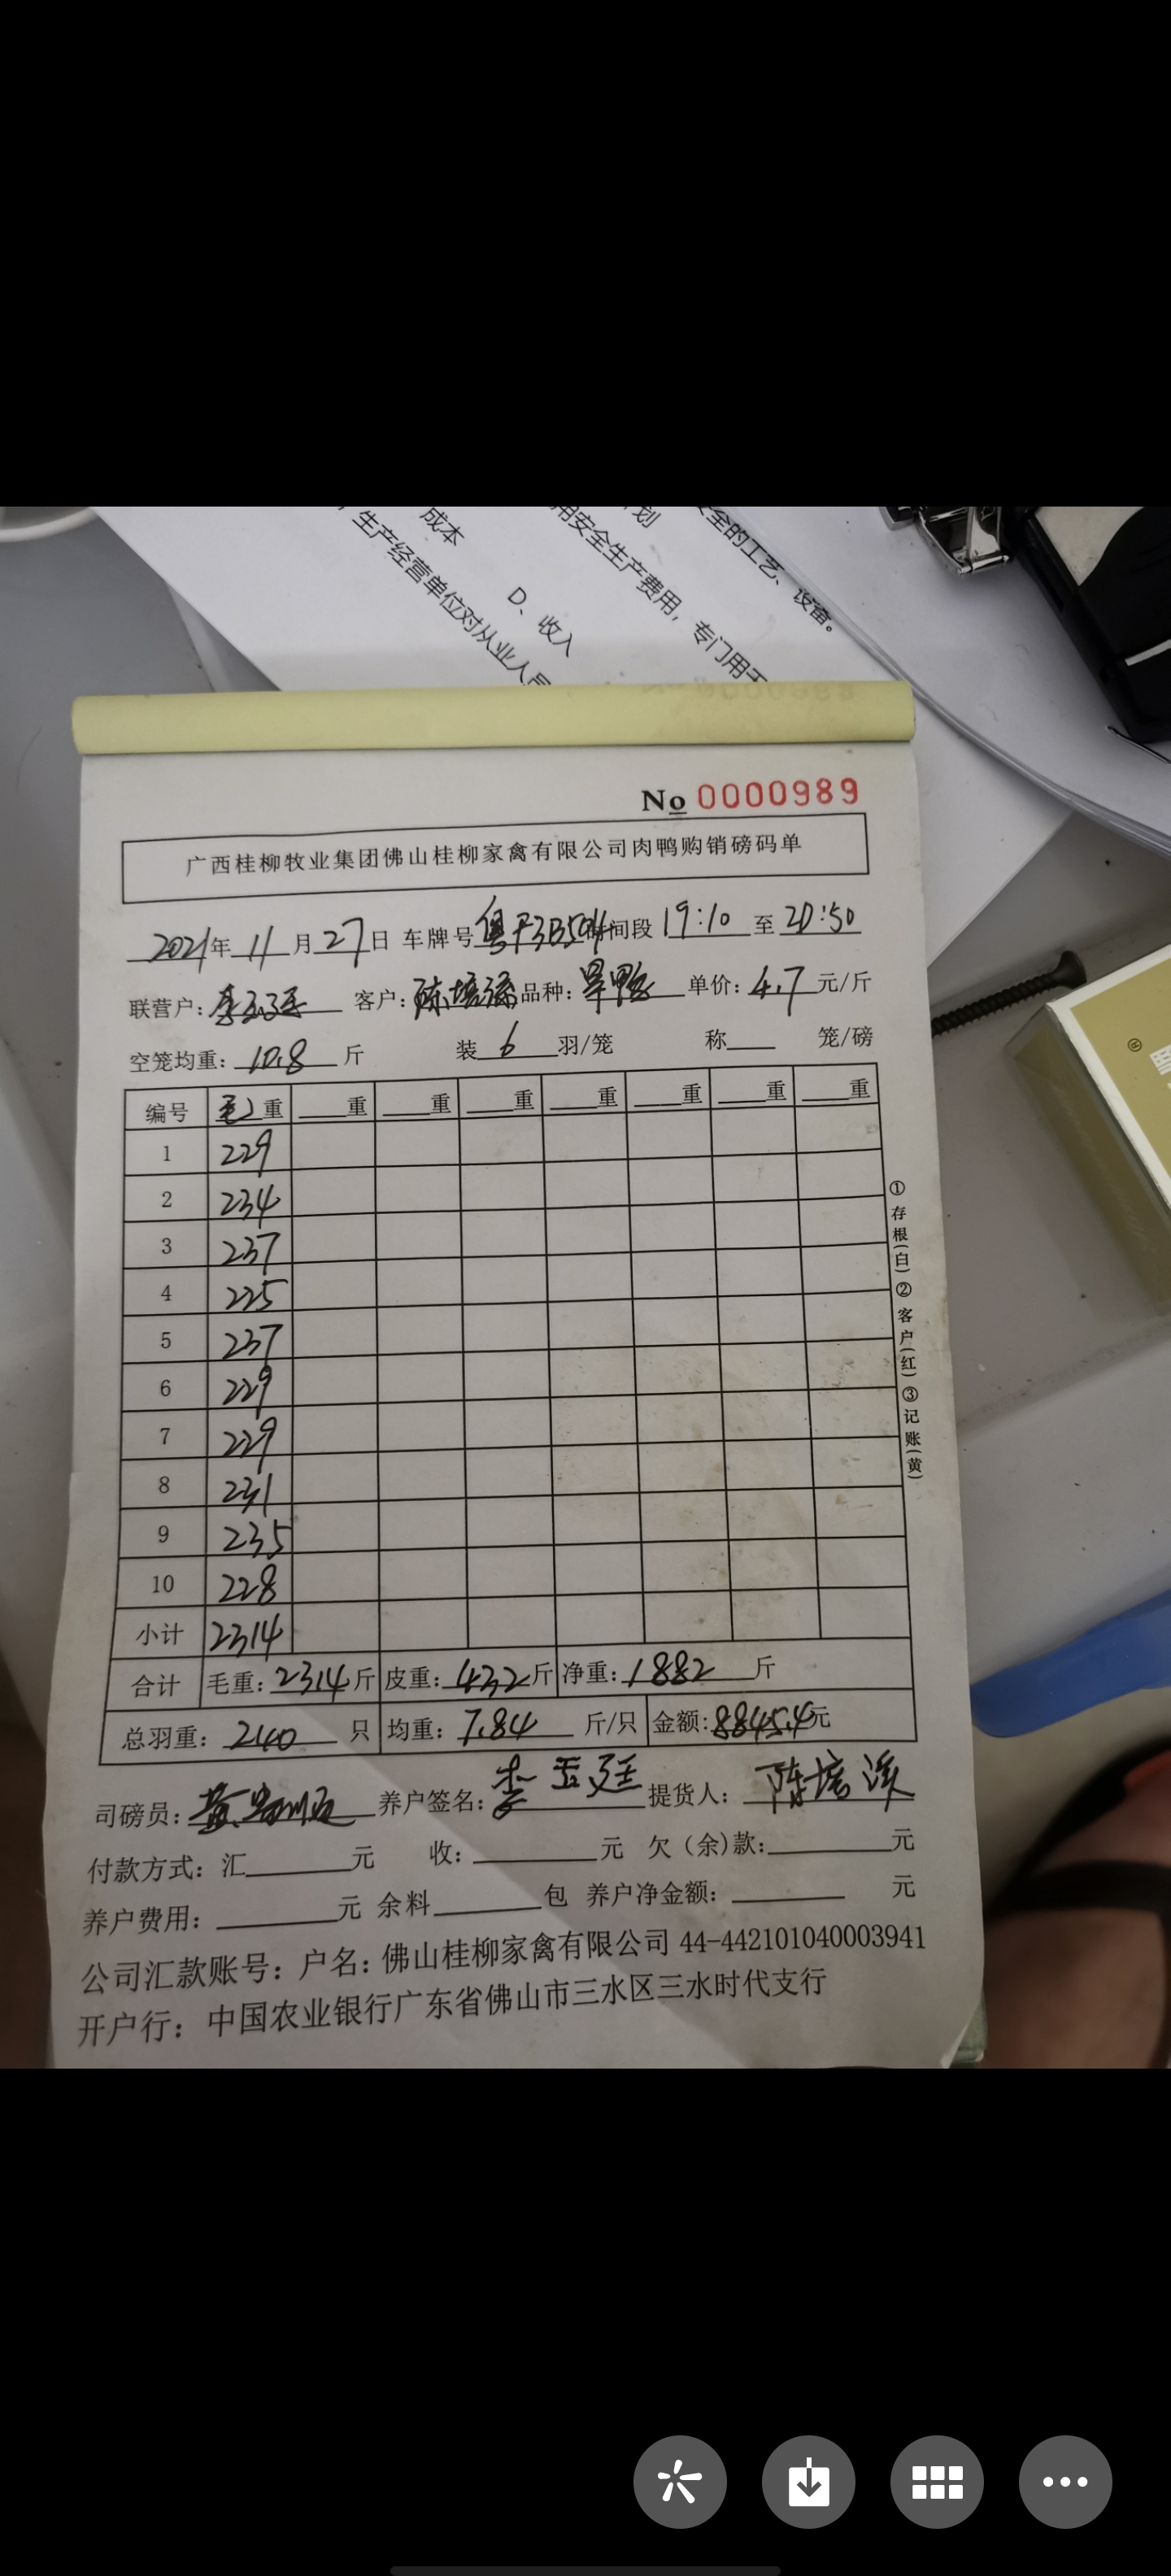 成本
划
全的工艺、设备。
用安全生产费用，专门用于
D、收入
生产经营单位对从业人员
No 0000989
广西桂柳牧业集团佛山桂柳家禽有限公司肉鸭购销磅码单
2021年 11月27日 车牌号 粤 时间段 19:10 至 20:50
联营户: 李 客户: 陈培 品种: 旱鸭 单价: 4.7 元/斤
空笼均重: 10.8 斤 装 6 羽/笼 称 笼/磅
编号 毛重 重 重 重 重 重 重 重
1 229
2 234
3 237
4 225
5 237
6 229
7 229
8 231
9 235
10 228
小计 2314
合计 毛重: 2314斤 皮重: 432斤 净重: 1882斤
总羽重: 240 只 均重: 7.84 斤/只 金额: 8845.4元
司磅员: 黄 养户签名: 李玉廷 提货人: 陈培
付款方式: 汇 元 收: 元 欠（余)款: 元
养户费用: 元 余料 包 养户净金额: 元
公司汇款账号: 户名: 佛山桂柳家禽有限公司 44-442101040003941
开户行: 中国农业银行广东省佛山市三水区三水时代支行
①存根(白) ②客户(红) ③记账(黄)